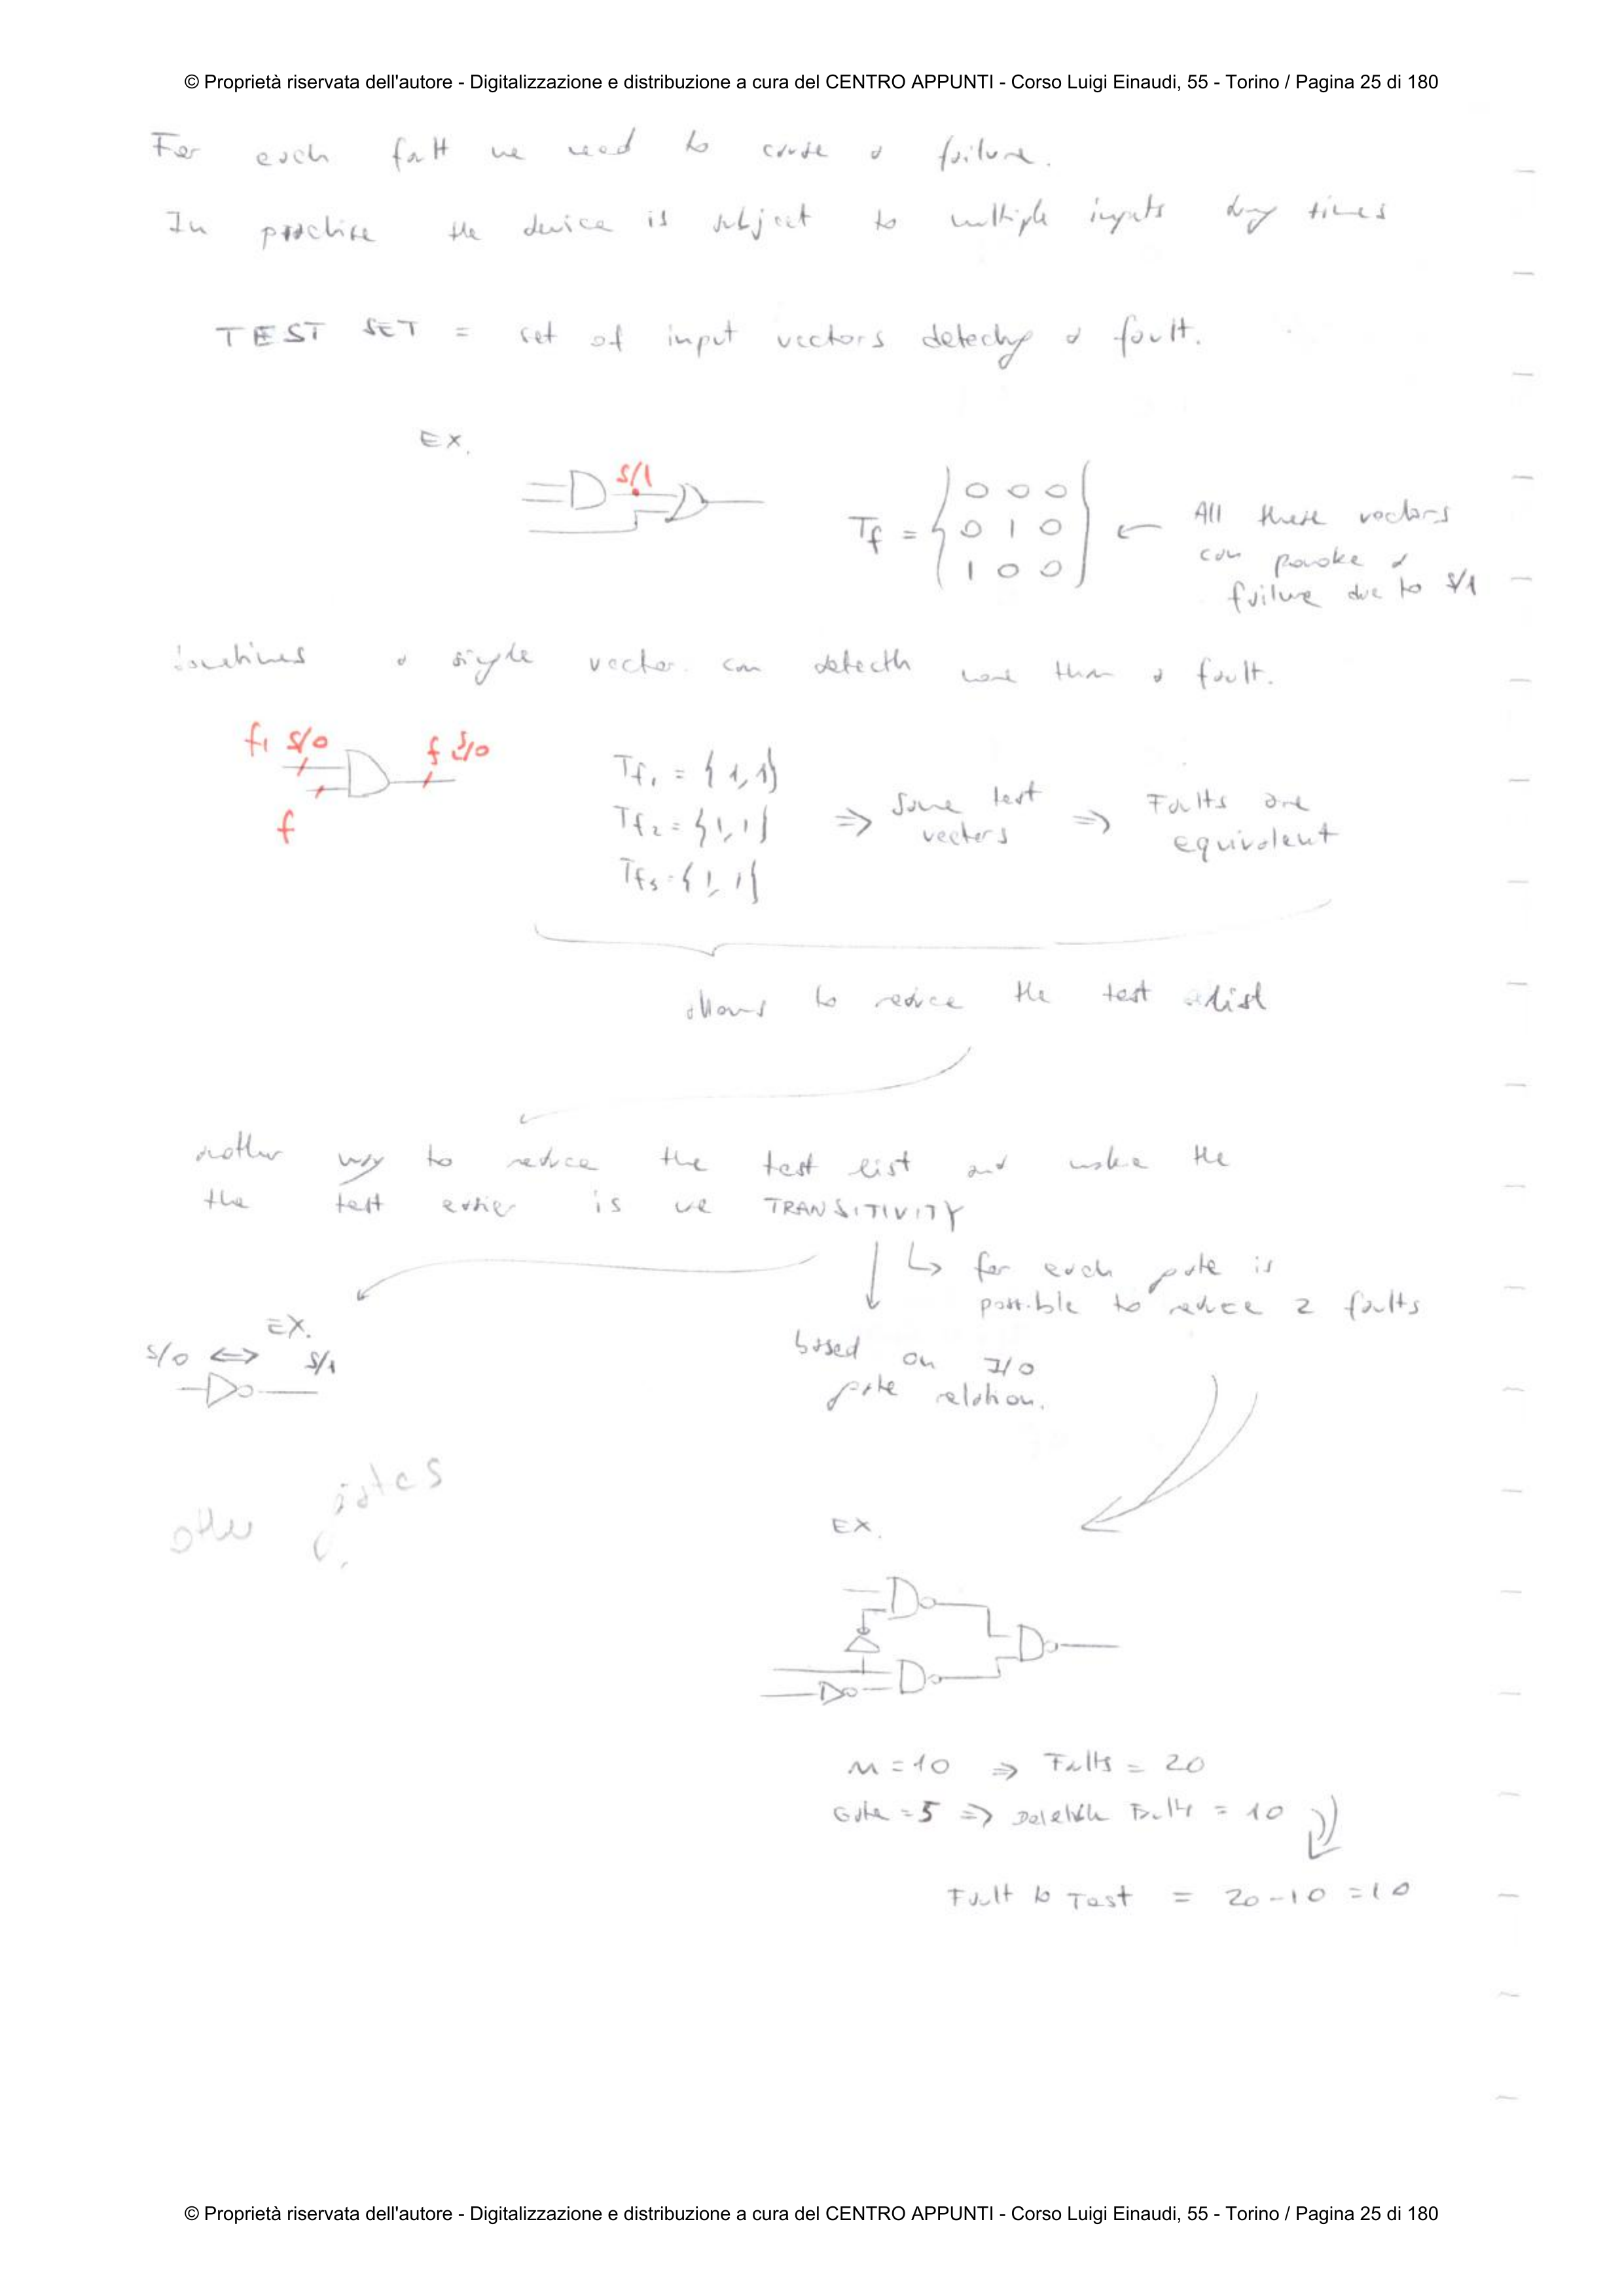 © Proprietà riservata dell'autore - Digitalizzazione e distribuzione a cura del CENTRO APPUNTI - Corso Luigi Einaudi, 55 - Torino / Pagina 25 di 180
For each fault we need to cause a failure.
In practice the device is subject to multiple inputs many times
TEST SET = set of input vectors detecting a fault.
EX.
S/1
Tf = { 0 0 0
0 1 0
1 0 0 }
← All these vectors
can provoke a
failure due to S/1
Sometimes a single vector can detect more than a fault.
f1 S/0
f S/0
f
Tf1 = {1,1}
Tf2 = {1,1}
Tf3 = {1,1}
⇒ Same test
vectors
⇒ Faults are
equivalent
allows to reduce the test list
another way to reduce the test list and make the
the test easier is use TRANSITIVITY
↳ for each gate is
possible to reduce 2 faults
based on I/O
gate relation.
EX.
S/0 ⇔ S/1
other gates
EX.
n = 10 ⇒ Faults = 20
Gate = 5 ⇒ Deletable Faults = 10
Fault to Test = 20 - 10 = 10
© Proprietà riservata dell'autore - Digitalizzazione e distribuzione a cura del CENTRO APPUNTI - Corso Luigi Einaudi, 55 - Torino / Pagina 25 di 180